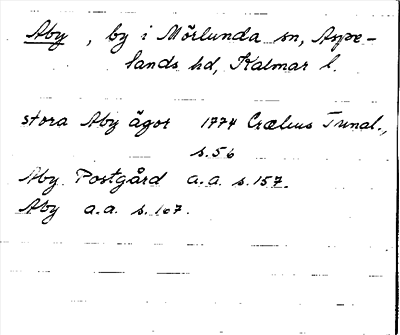 Åby, by i Mörlunda sn, Aspe-
lands hd, Kalmar l.
stora Åby ägor 1774 Crælius Tunal.,
s.56
Åby Postgård a.a. s.157.
Åby a.a. s.167.